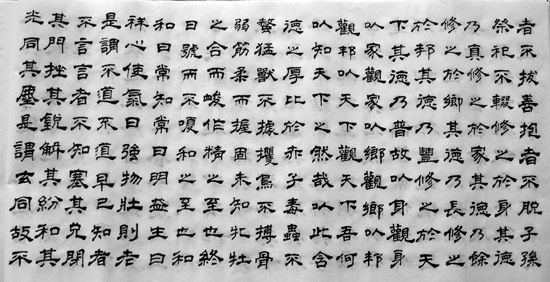 者不拔善抱者不脫子孫
祭祀不輟修之於身其德
乃真修之於家其德乃餘
修之於鄉其德乃長修之
於邦其德乃豐修之於天
下其德乃普故㠯身觀身
㠯家觀家㠯鄉觀鄉㠯邦
觀邦㠯天下觀天下吾何
㠯知天下之然哉㠯此含
德之厚比於赤子毒蟲不
螫猛獸不據攫鳥不搏骨
弱筋柔而握固未知牝牡
之合而峻作精之至也終
日號而不嗄和之至也和
和曰常知常曰明益生曰
祥心使氣曰強物壯則老
是謂不道不道早已知者
不言言者不知塞其兌閉
其門挫其銳解其紛和其
光同其塵是謂玄同故不